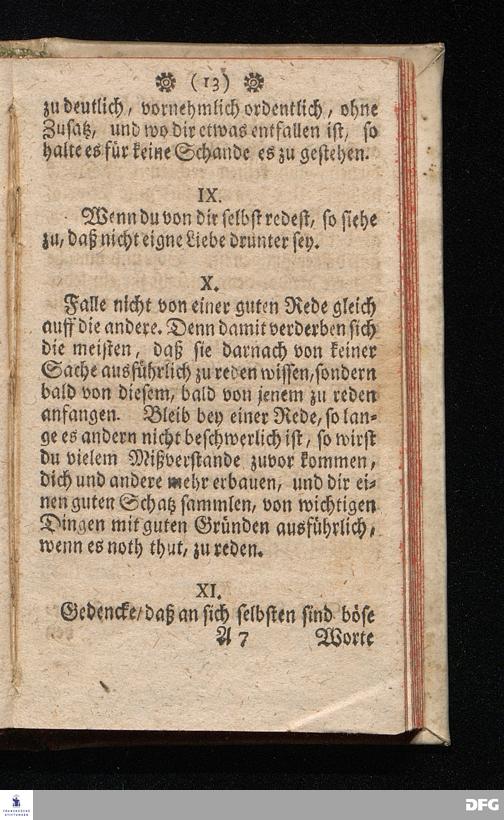 (13)
zu deutlich, vornehmlich ordentlich, ohne
Zusatz, und wo dir etwas entfallen ist, so
halte es für keine Schande es zu gestehen.
IX.
Wenn du von dir selbst redest, so siehe
zu, daß nicht eigne Liebe drunter sey.
X.
Falle nicht von einer guten Rede gleich
auff die andere. Denn damit verderben sich
die meisten, daß sie darnach von keiner
Sache ausführlich zu reden wissen, sondern
bald von diesem, bald von jenem zu reden
anfangen. Bleib bey einer Rede, so lan-
ge es andern nicht beschwerlich ist, so wirst
du vielem Mißverstande zuvor kommen,
dich und andere mehr erbauen, und dir ei-
nen guten Schatz sammlen, von wichtigen
Dingen mit guten Gründen ausführlich,
wenn es noth thut, zu reden.
XI.
Gedencke/ daß an sich selbsten sind böse
A 7 Worte
FRANCKESCHE
STIFTUNGEN
DFG